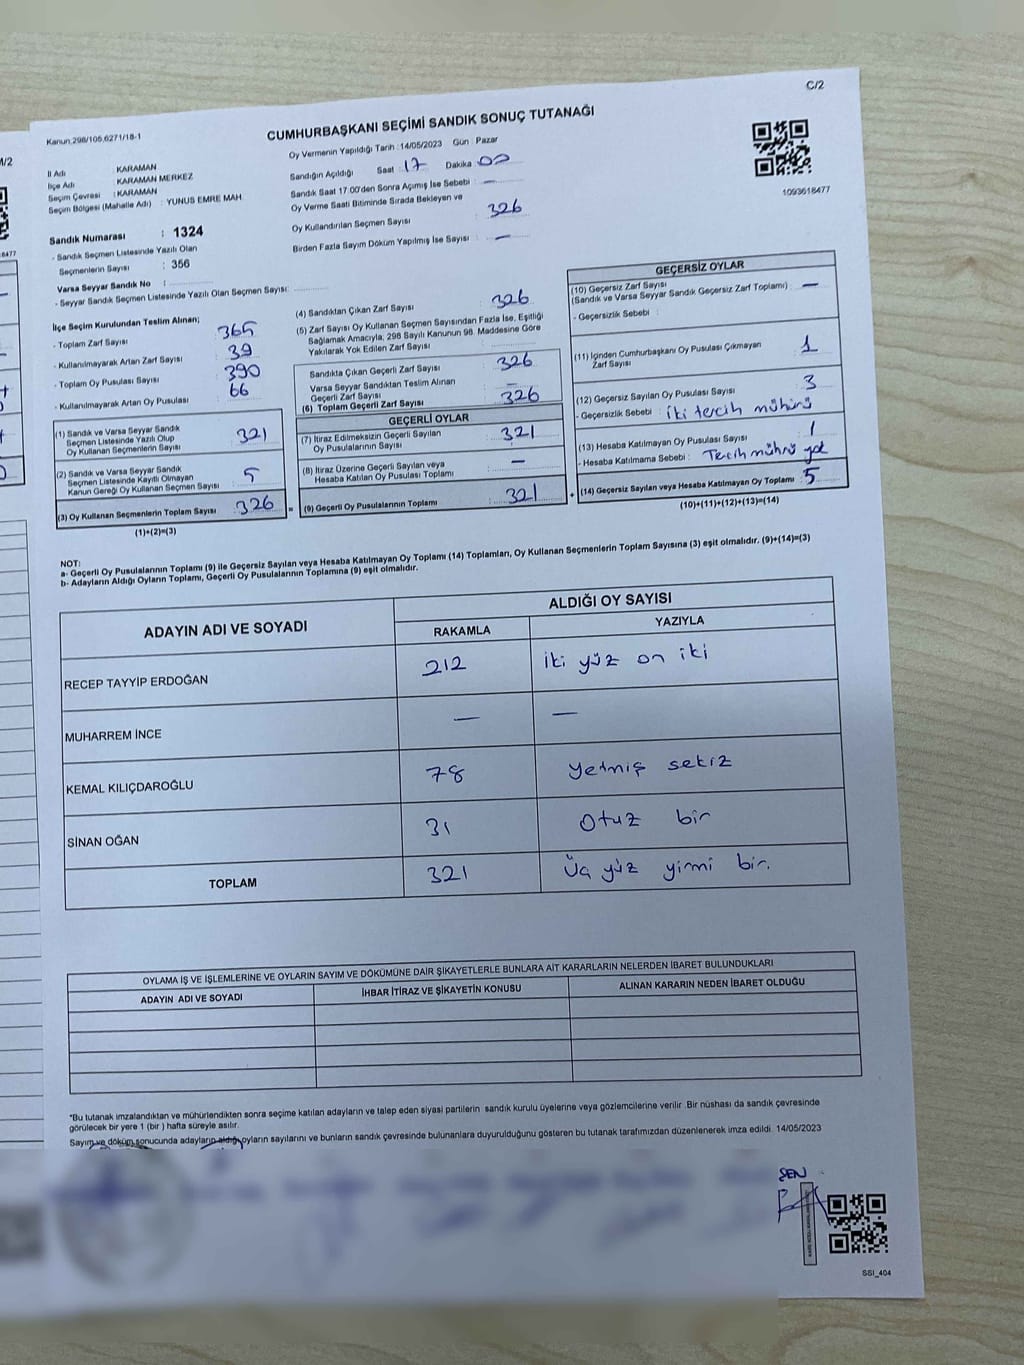 C/2
Kanun:298/105,6271/18-1
CUMHURBAŞKANI SEÇİMİ SANDIK SONUÇ TUTANAĞI
Oy Vermenin Yapıldığı Tarih :14/05/2023 Gün : Pazar
İl Adı : KARAMAN
İlçe Adı : KARAMAN MERKEZ
Seçim Çevresi : KARAMAN
Seçim Bölgesi (Mahalle Adı) : YUNUS EMRE MAH.
Sandığın Açıldığı Saat 17 Dakika 00
Sandık Saat 17:00'den Sonra Açımış İse Sebebi : —
Oy Verme Saati Bitiminde Sırada Bekleyen ve
Oy Kullandırılan Seçmen Sayısı : 326
Birden Fazla Sayım Döküm Yapılmış İse Sayısı : —
1093618477
Sandık Numarası : 1324
- Sandık Seçmen Listesinde Yazılı Olan
Seçmenlerin Sayısı : 356
Varsa Seyyar Sandık No :
- Seyyar Sandık Seçmen Listesinde Yazılı Olan Seçmen Sayısı:
İlçe Seçim Kurulundan Teslim Alınan;
- Toplam Zarf Sayısı 365
- Kullanılmayarak Artan Zarf Sayısı 39
- Toplam Oy Pusulası Sayısı 390
- Kullanılmayarak Artan Oy Pusulası 66
(1) Sandık ve Varsa Seyyar Sandık
Seçmen Listesinde Yazılı Olup
Oy Kullanan Seçmenlerin Sayısı 321
(2) Sandık ve Varsa Seyyar Sandık
Seçmen Listesinde Kayıtlı Olmayan
Kanun Gereği Oy Kullanan Seçmen Sayısı 5
(3) Oy Kullanan Seçmenlerin Toplam Sayısı 326
(1)+(2)=(3)
(4) Sandıktan Çıkan Zarf Sayısı 326
(5) Zarf Sayısı Oy Kullanan Seçmen Sayısından Fazla İse, Eşitliği
Sağlamak Amacıyla, 298 Sayılı Kanunun 98. Maddesine Göre
Yakılarak Yok Edilen Zarf Sayısı
Sandıkta Çıkan Geçerli Zarf Sayısı 326
Varsa Seyyar Sandıktan Teslim Alınan
Geçerli Zarf Sayısı —
(6) Toplam Geçerli Zarf Sayısı 326
GEÇERLİ OYLAR
(7) İtiraz Edilmeksizin Geçerli Sayılan
Oy Pusulalarının Sayısı : 321
(8) İtiraz Üzerine Geçerli Sayılan veya
Hesaba Katılan Oy Pusulası Toplamı : —
= (9) Geçerli Oy Pusulalarının Toplamı : 321
GEÇERSİZ OYLAR
(10) Geçersiz Zarf Sayısı
(Sandık ve Varsa Seyyar Sandık Geçersiz Zarf Toplamı) : —
- Geçersizlik Sebebi :
(11) İçinden Cumhurbaşkanı Oy Pusulası Çıkmayan
Zarf Sayısı 1
(12) Geçersiz Sayılan Oy Pusulası Sayısı 3
- Geçersizlik Sebebi : iki tercih mühürü
(13) Hesaba Katılmayan Oy Pusulası Sayısı 1
- Hesaba Katılmama Sebebi : Tercih mührü yok
+ (14) Geçersiz Sayılan veya Hesaba Katılmayan Oy Toplamı : 5
(10)+(11)+(12)+(13)=(14)
NOT:
a- Geçerli Oy Pusulalarının Toplamı (9) ile Geçersiz Sayılan veya Hesaba Katılmayan Oy Toplamı (14) Toplamları, Oy Kullanan Seçmenlerin Toplam Sayısına (3) eşit olmalıdır. (9)+(14)=(3)
b- Adayların Aldığı Oyların Toplamı, Geçerli Oy Pusulalarının Toplamına (9) eşit olmalıdır.
ADAYIN ADI VE SOYADI
ALDIĞI OY SAYISI
RAKAMLA YAZIYLA
RECEP TAYYİP ERDOĞAN 212 iki yüz on iki
MUHARREM İNCE — —
KEMAL KILIÇDAROĞLU 78 yetmiş sekiz
SİNAN OĞAN 31 Otuz bir
TOPLAM 321 Üç yüz yirmi bir.
OYLAMA İŞ VE İŞLEMLERİNE VE OYLARIN SAYIM VE DÖKÜMÜNE DAİR ŞİKAYETLERLE BUNLARA AİT KARARLARIN NELERDEN İBARET BULUNDUKLARI
ADAYIN ADI VE SOYADI İHBAR İTİRAZ VE ŞİKAYETİN KONUSU ALINAN KARARIN NEDEN İBARET OLDUĞU
*Bu tutanak imzalandıktan ve mühürlendikten sonra seçime katılan adayların ve talep eden siyasi partilerin sandık kurulu üyelerine veya gözlemcilerine verilir. Bir nüshası da sandık çevresinde
görülecek bir yere 1 (bir ) hafta süreyle asılır.
Sayım ve döküm sonucunda adayların aldığı oyların sayılarını ve bunların sandık çevresinde bulunanlara duyurulduğunu gösteren bu tutanak tarafımızdan düzenlenerek imza edildi. 14/05/2023
ŞEN
SSI_404